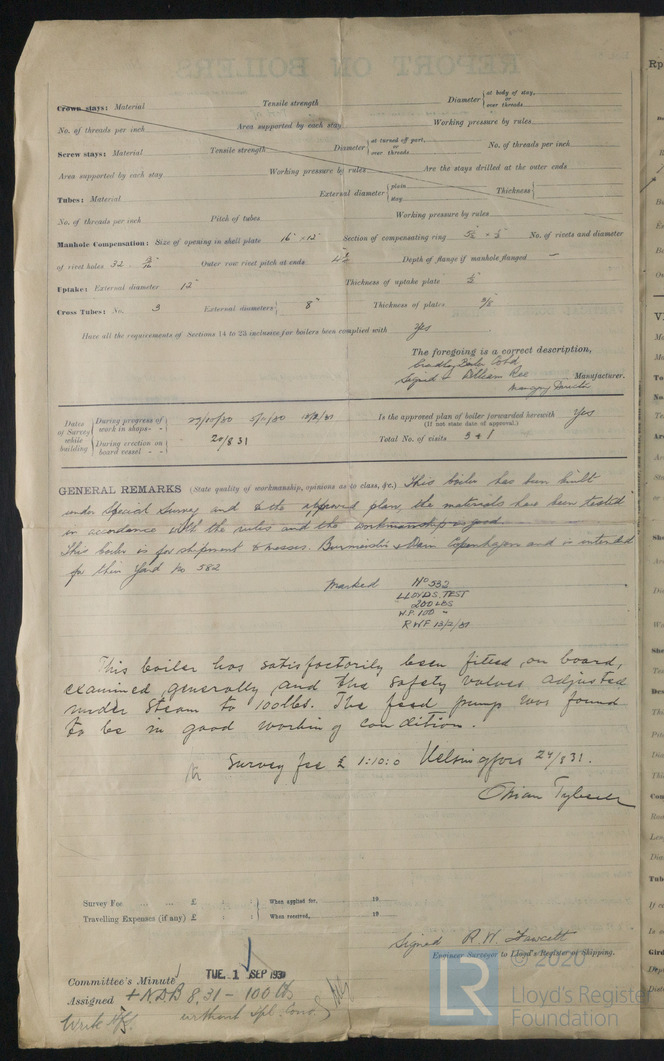 REPORT ON BOILERS
Crown stays: Material Tensile strength Diameter { at body of stay, or over threads
No. of threads per inch Area supported by each stay Working pressure by rules
Screw stays: Material Tensile strength Diameter { at turned off part, or over threads No. of threads per inch
Area supported by each stay Working pressure by rules Are the stays drilled at the outer ends
Tubes: Material External diameter { plain stay Thickness {
No. of threads per inch Pitch of tubes Working pressure by rules
Manhole Compensation: Size of opening in shell plate 16" × 12" Section of compensating ring No. of rivets and diameter
of rivet holes 32 Outer row rivet pitch at ends Depth of flange if manhole flanged –
Uptake: External diameter 12" Thickness of uptake plate ½"
Cross Tubes: No. 3 External diameters { 8" Thickness of plates
Have all the requirements of Sections 14 to 22 inclusive for boilers been complied with Yes
The foregoing is a correct description,
Bradley Boiler
Signed William Manufacturer.
Managing Director
Dates of Survey while building { During progress of work in shops - - 5/11/30 10/2/31
During erection on board vessel - - - 20/8 31
Is the approved plan of boiler forwarded herewith Yes
(If not state date of approval.)
Total No. of visits 3 + 1
GENERAL REMARKS (State quality of workmanship, opinions as to class, &c.) This boiler has been built
under Special Survey and to the approved plan, the materials has been tested
in accordance with the rules and the workmanship is good
This boiler is for shipment to Messrs. Burmeister & Wain Copenhagen and is intended
for their Yard No 582
Marked No 532
LLOYDS. TEST
200 LBS
W.P. 100 "
RWF 13/2/31
This boiler has satisfactorily been fitted on board,
examined generally and the safety valves adjusted
under steam to 100 lbs. The feed pump was found
to be in good working condition.
Survey fee £ 1:10:0 Helsingfors 24/8 31.
Survey Fee ... ... £ : : When applied for, 19
Travelling Expenses (if any) £ : : When received, 19
Signed R. W. Fawcett
Engineer Surveyor to Lloyd's Register of Shipping.
Committee's Minute TUE. 1 SEP 1931
Assigned + NDB 8.31 – 100 lbs
without spl. cond
Write
LR © 2020
Lloyd's Register
Foundation